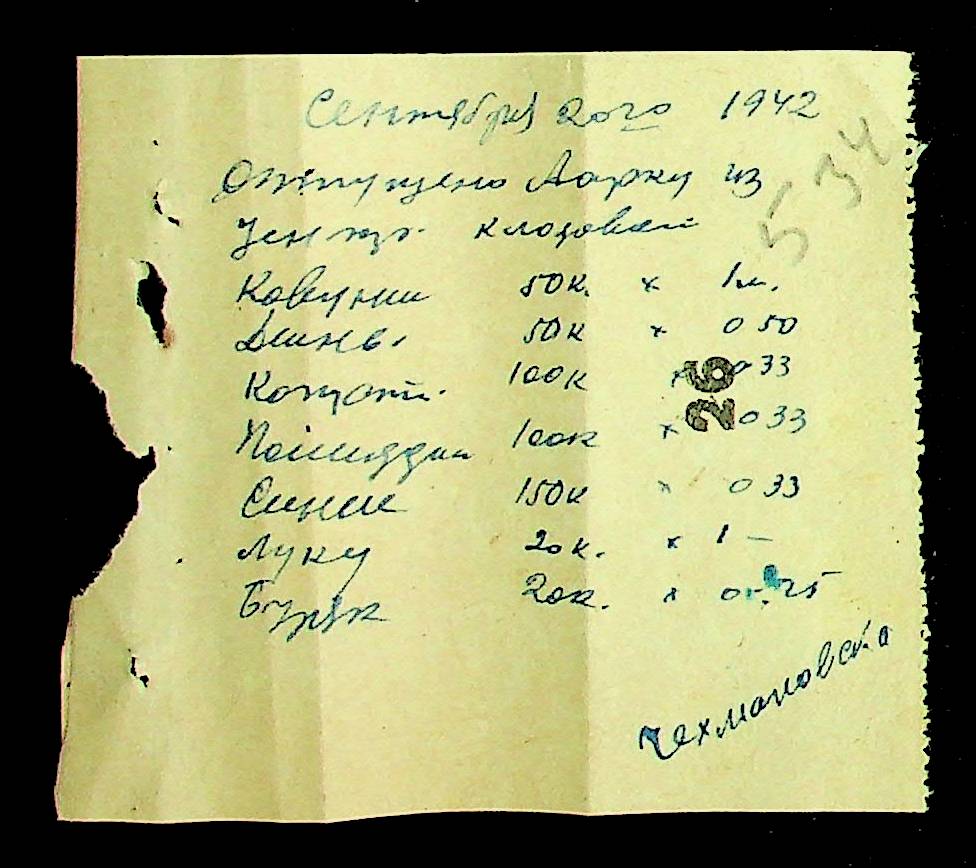 Сентября 20го 1942
534
Отпущено Ларку из
Центр. кладовой
Кавуни 50к. х 1м.
Динь. 50к х 0 50
Капуст. 100к х 0 33
26
Помидди 100к х 0 33
Синие 150к х 0 33
Луку 20к. х 1 —
Буряк 20к. х 0 25
Чехмановска